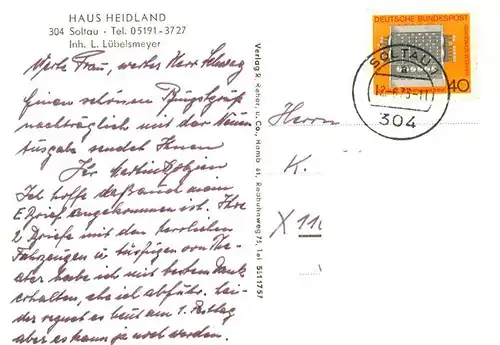 HAUS HEIDLAND
304 Soltau · Tel. 05191-3727
Inh. L. Lübelsmeyer
Werte Frau, werter Herr
Einen schönen Pfingstgruß
nachträglich mit der Neuen
ausgabe sendet Ihnen
Ihr Martin
Ich hoffe daß auch mein
E Brief angekommen ist. Ihre
2 Briefe mit den herrlichen
Fahrzeugen u.
aber habe ich mit bestem Dank
erhalten, ehe ich abfuhr. Lei-
der regnet es heut am 1. Festtag
aber es kann ja noch werden.
Verlag R. Rehers u. Co., Hambg. 61, Rebhuhnweg 75, Tel. 5511757
DEUTSCHE BUNDESPOST
40
SOLTAU
a
12.-6.73-11
304
Herrn
K.
X 110